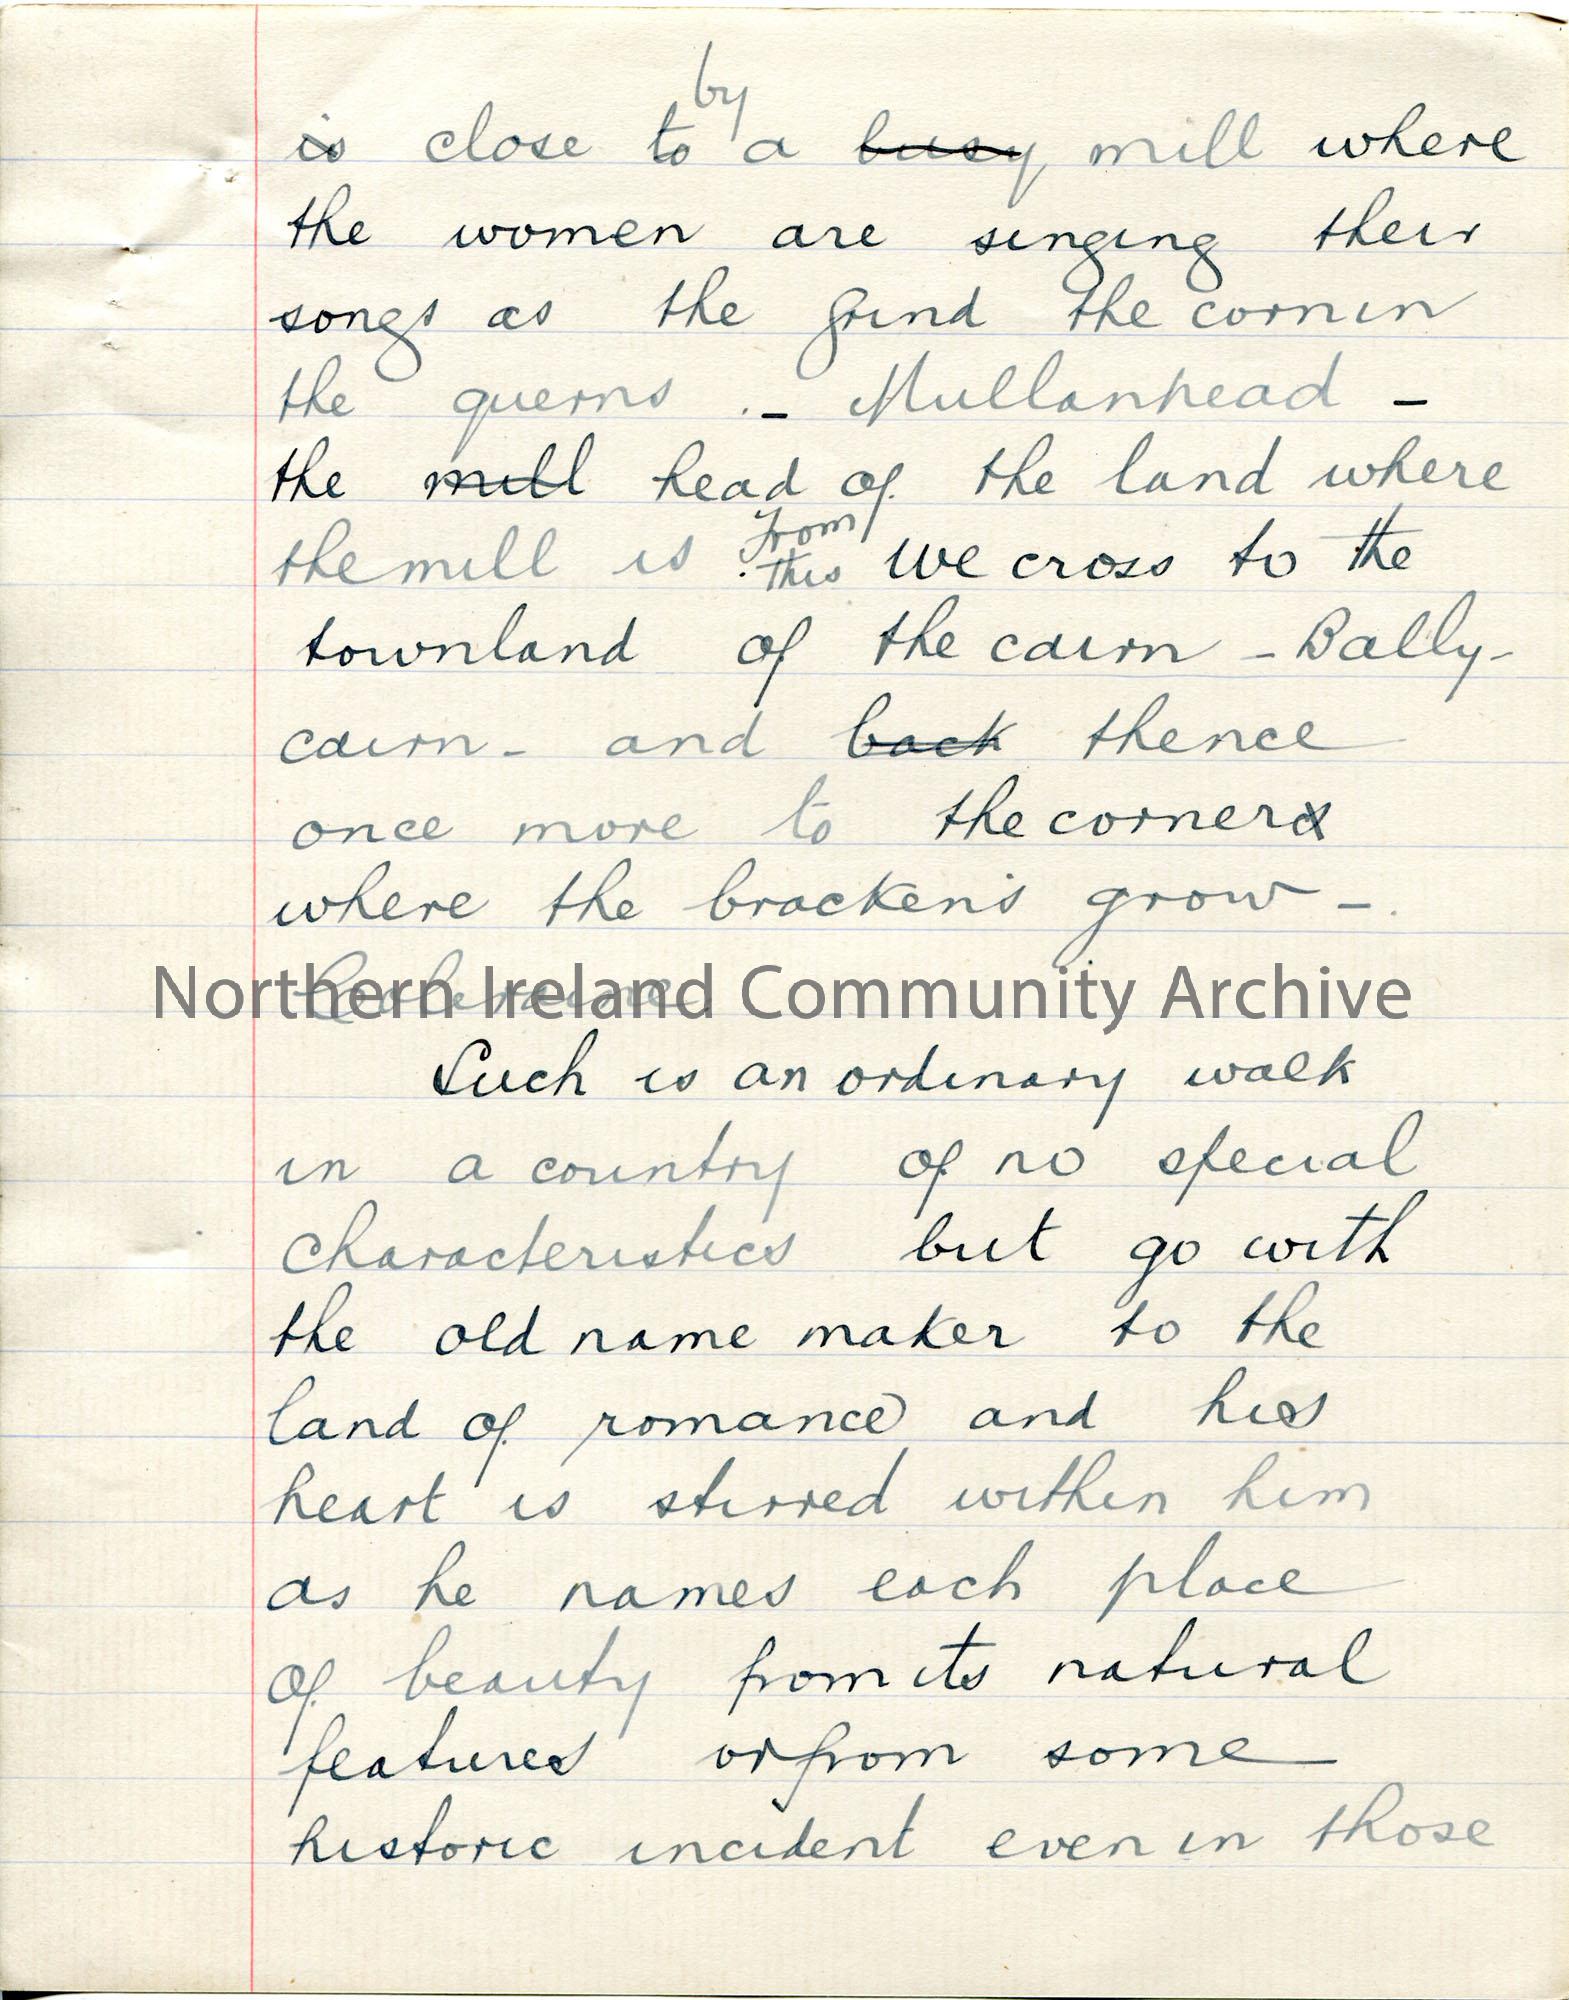 by
is close to a busy mill where
the women are singing their
songs as the grind the corn in
the querns. - Mullanhead -
the mill head of the land where
the mill is. From this we cross to the
townland of the cairn - Bally-
cairn - and back thence
once more to the corner
where the brackens grow -.
Coleraine.
Northern Ireland Community Archive
Such is an ordinary walk
in a country of no special
characteristics but go with
the old name maker to the
land of romance and his
heart is stirred within him
as he names each place
of beauty from its natural
features or from some
historic incident even in those